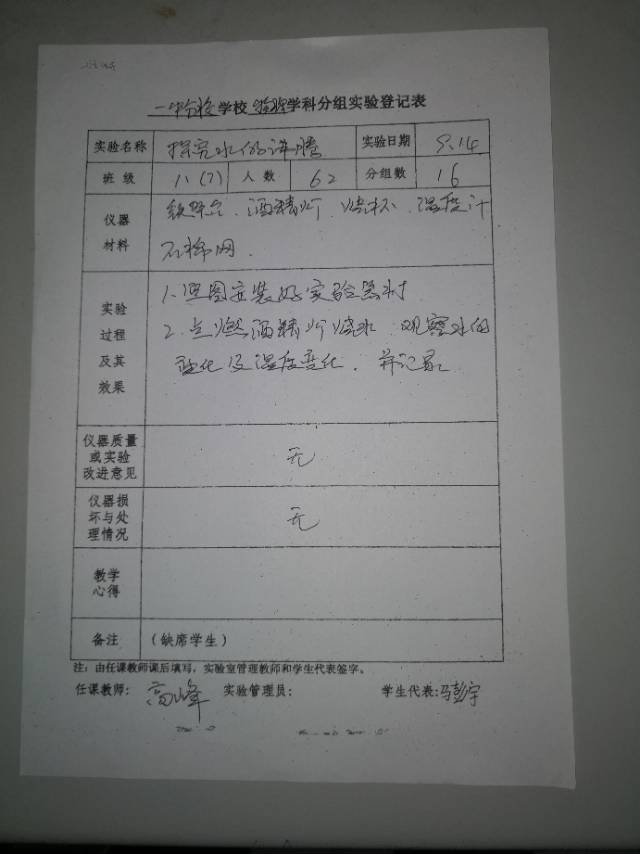 一中分校学校 物理学科分组实验登记表
实验名称 探究水的沸腾 实验日期 9.14
班级 八(7) 人数 62 分组数 16
仪器材料 铁架台、酒精灯、烧杯、温度计
石棉网.
实验过程及其效果
1.照图安装好实验器材
2.点燃酒精灯烧水 观察水的
变化及温度变化. 并记录
仪器质量或实验改进意见 无
仪器损坏与处理情况 无
教学心得
备注 (缺席学生)
注：由任课教师课后填写，实验室管理教师和学生代表签字。
任课教师：高峰 实验管理员： 学生代表：马彭宇